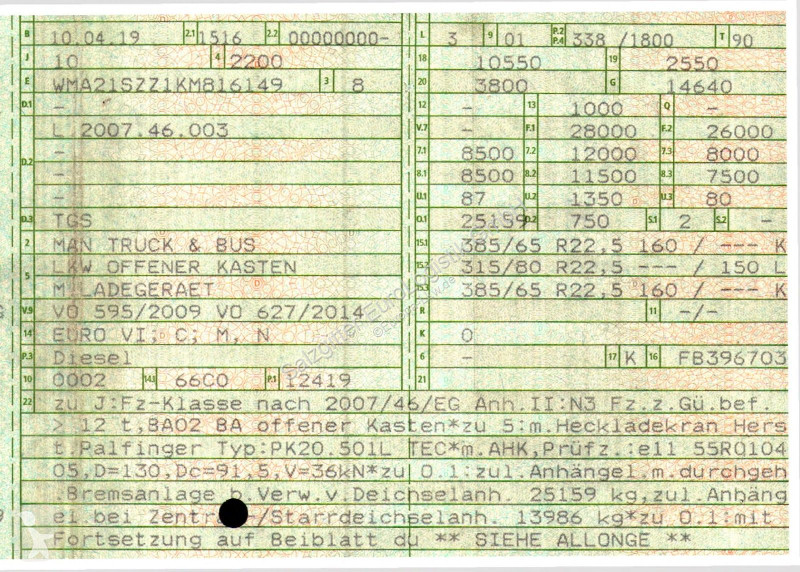 B 10.04.19 2.1 1516 2.2 00000000- L 3 9 01 P.2 P.4 338 /1800 T 90
J 10 4 2200 18 10550 19 2550
E WMA21SZZ1KM816149 3 8 20 3800 G 14640
D.1 - 12 - 13 1000 Q -
L.2007.46.003 V.7 - F.1 28000 F.2 26000
D.2 - 7.1 8500 7.2 12000 7.3 8000
- 8.1 8500 8.2 11500 8.3 7500
- U.1 87 U.2 1350 U.3 80
D.3 TGS O.1 25159 O.2 750 S.1 2 S.2 -
2 MAN TRUCK & BUS 15.1 385/65 R22,5 160 / --- K
5 LKW OFFENER KASTEN 15.2 315/80 R22,5 --- / 150 L
M.LADEGERAET 15.3 385/65 R22,5 160 / --- K
V.9 VO 595/2009 VO 627/2014 R 11 -/-
14 EURO VI; C; M, N K 0
P.3 Diesel 6 - 17 K 16 FB396703
10 0002 14.1 66C0 P.1 12419 21
22 zu J:Fz-Klasse nach 2007/46/EG Anh.II:N3 Fz.z.Gü.bef.
> 12 t,BA02 BA offener Kasten*zu 5:m.Heckladekran Hers
t.Palfinger Typ:PK20.501L TEC*m.AHK,Prüfz.:e11 55R0104
05,D=130,Dc=91,5,V=36kN*zu O.1:zul.Anhängel.m.durchgeh
.Bremsanlage b.Verw.v.Deichselanh. 25159 kg,zul.Anhäng
el.bei Zentr -/Starrdeichselanh. 13986 kg*zu O.1:mit
Fortsetzung auf Beiblatt du ** SIEHE ALLONGE **